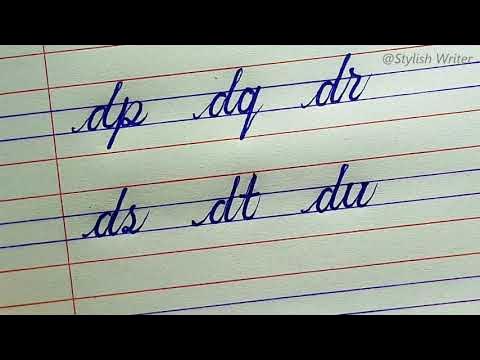 @Stylish Writer
dp dq dr
ds dt du